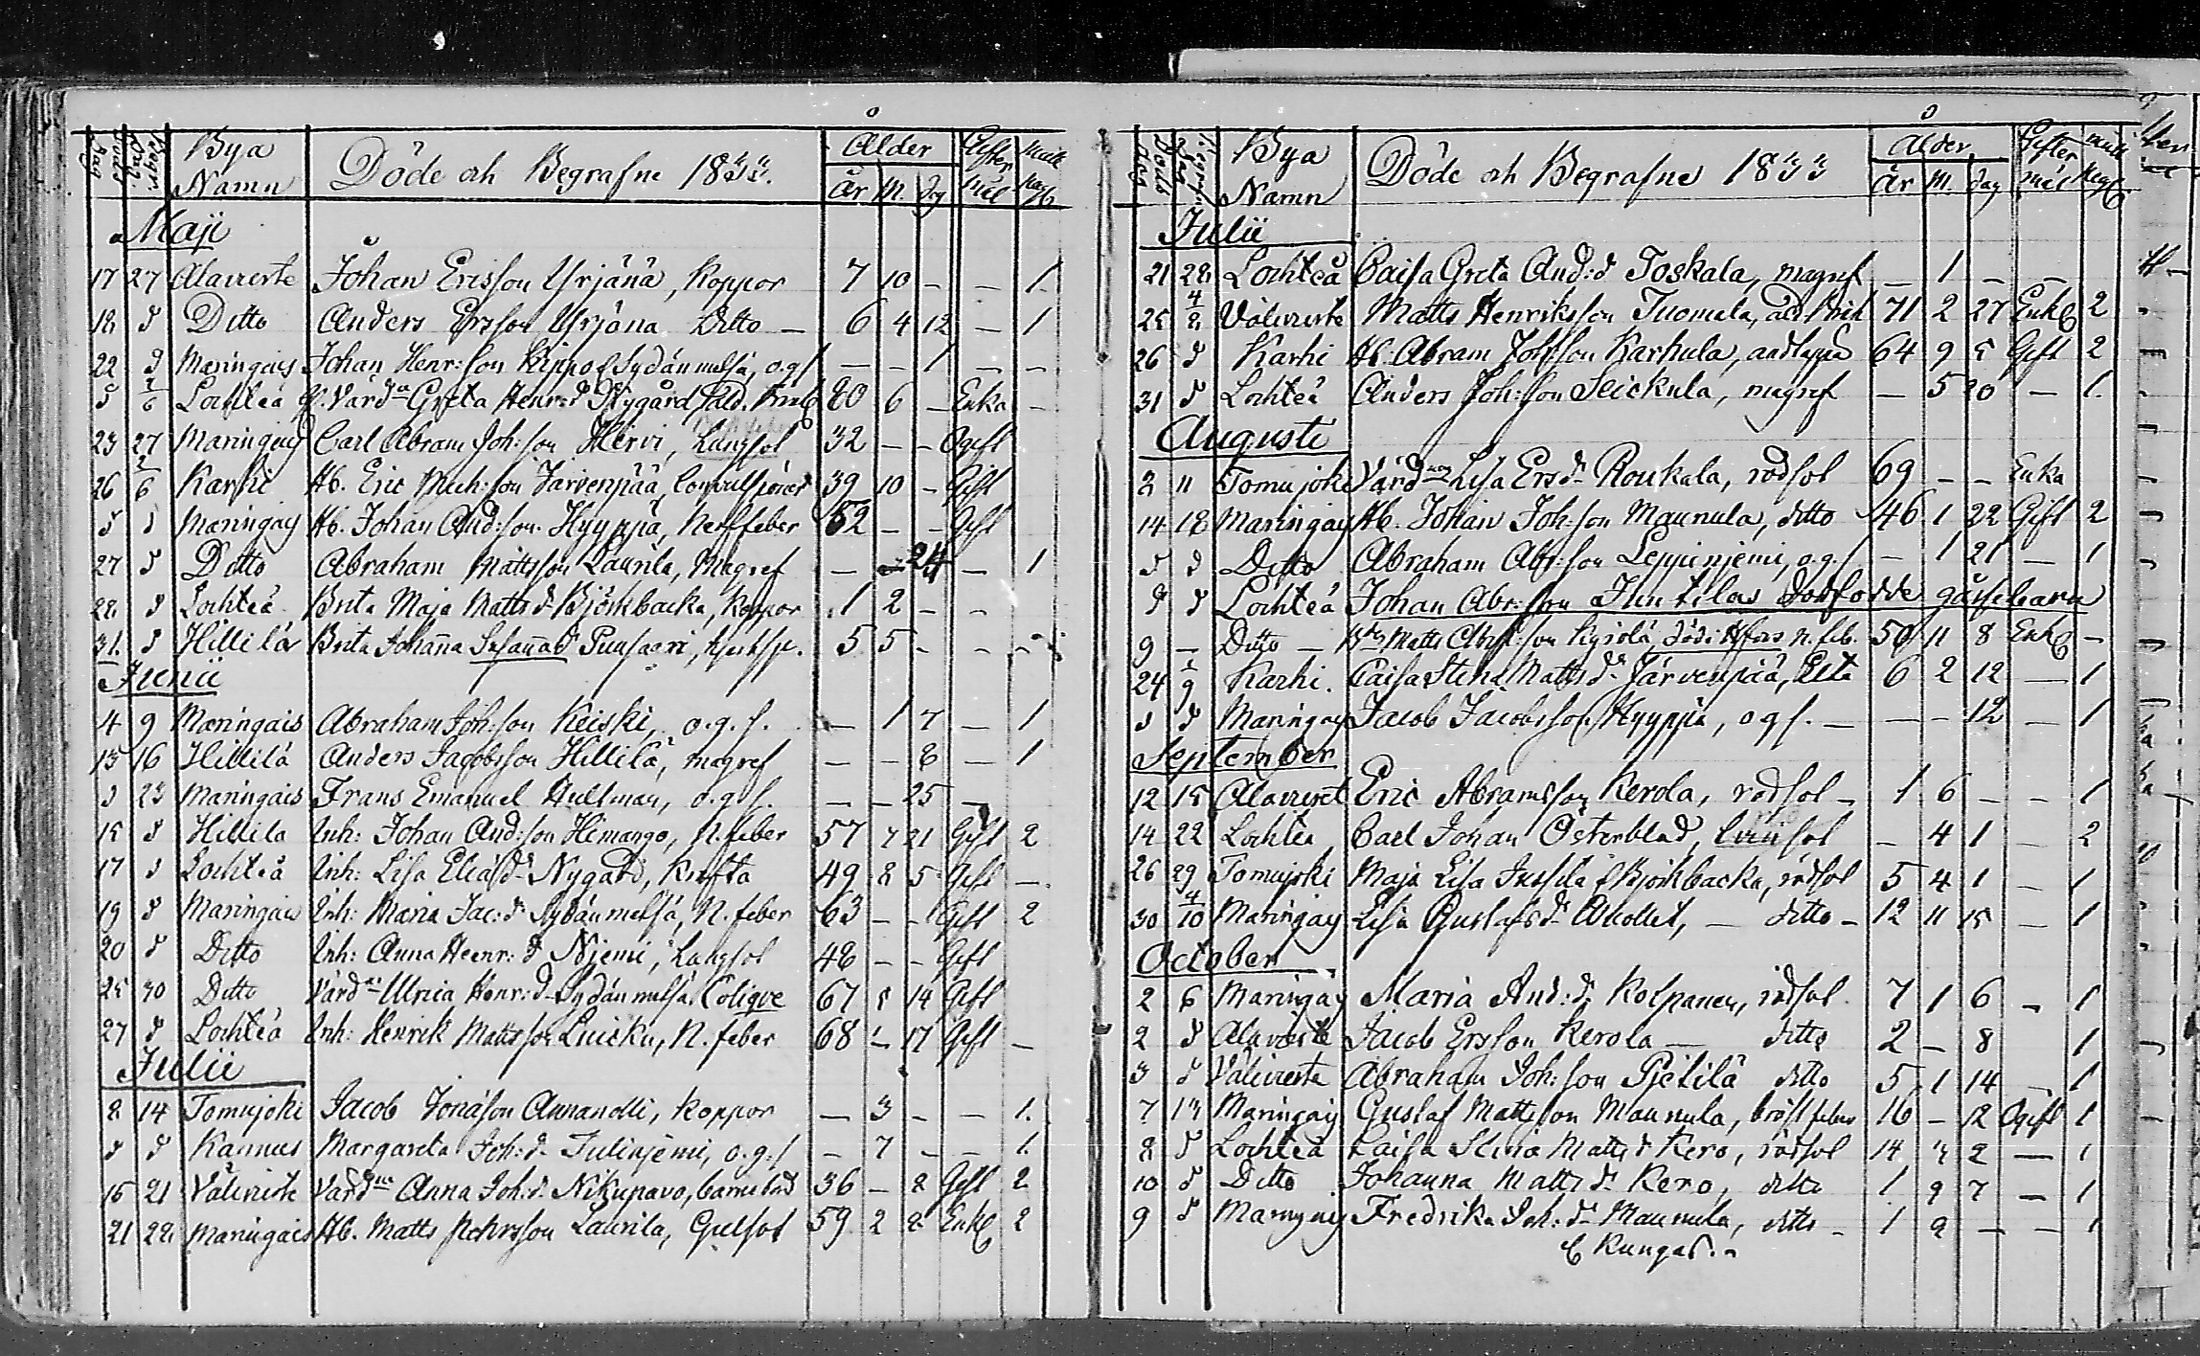 Döds Dag Begr. Dag Bya Namn Döde och Begrafne 1833. Ålder År M. Dag Gifter mål
Maji
17 27 Alavirste Johan Ersson Yrjänä, Koppor 7 10 – – 1
18 d Ditto Anders Ersson Yrjänä Ditto – 6 4 12 – 1
22 d Maringais Johan Henr:son Kippo l Sydänmetsä, o.g.f – – 1 – –
d 2/6 Lochteå Greta Henr:d Nygård 80 6 – Enka –
23 27 Maringais Carl Abram Joh:son Hirvi, Lungsot 32 – – Ogift
26 2/6 Karhi Hb. Eric Mich:son Järvenpää, 39 10 – Gift
d d Maringais Hb. Johan And:son Hyyppä, Nerffeber 52 – – Gift
27 d Ditto Abraham Mattsson Laurila, Magref – – 24 – 1
28 d Lochteå Brita Maja Matts d Björkbacka, Koppor 1 2 – –
31 d Hillilä Brita Johanna Susannad Puusaari, 5 5 – – –
Junii
4 9 Maringais Abraham Joh:son Keiski, o.g.f. – 1 7 – 1
13 16 Hillilä Anders Jacobsson Hillilä, magref – – 8 – 1
d 23 Maringais Frans Emanuel Hultman, o.g.f. – – 25 –
15 d Hillila Inh: Johan And:son Himango, N.feber 57 7 21 Gift 2
17 d Lochteå Inh: Lisa Eliäs d Nygård, Kräfta 49 8 5 Gift –
19 d Maringais Inh: Maria Jac:d Sydänmetsä, N. feber 63 – – Gift 2
20 d Ditto Inh: Anna Henr: d Njemi, Lungsot 48 – – Gift
25 30 Ditto Värd:n Ulrica Henr:d Sydänmetsä, Colique 67 5 14 Gift
27 d Lochteå Inh: Henrik Mattsson Luicku, N. feber 68 – 17 Gift –
Julii
8 14 Tomujoki Jacob Jonasson Annanolli, Koppor – 3 – – 1
d d Kannus Margareta Joh:d Julinjemi, o.g.f – 7 – – 1
15 21 Välivirste Värd:n Anna Joh:d Nikupavo, barnsbörd 36 – 8 Gift 2
21 28 Maringais Hb. Matts Pehrsson Laurila, Gulsot 59 2 8 Enkl 2
Döds Dag Begr. Dag Bya Namn Döde och Begrafne 1833 Ålder År M. Dag Gifter mål
Julii
21 28 Lochteå Caisa Greta And:d Toskala, magref – 1 – –
25 4/8 Välivirste Matts Henriksson Tuomala, 71 2 27 Enkl 2
26 d Karhi Hb. Abram Joh:son Karhula, andtäppa 64 9 5 Gift 2
31 d Lochteå Anders Joh:son Sleickula, magref – 5 20 – 1
Augusti
2 11 Tomujoki Värd:n Lisa Ersd Roukala, rödsot 69 – – Enka
14 18 Maringais Hb. Johan Joh:son Maunula, ditto 46 1 22 Gift 2
d d Ditto Abraham Abr:son Leppinjemi, o.g.f – 1 21 – 1
d d Lochteå Johan Abr:son Juntilas dödfödde gåssebarn
9 – Ditto – Matts Abr:son Kyrölä, n. feb. 50 11 8 Enkl –
24 1/9 Karhi Caisa Stina Matts d Järvenpää, 6 2 12 – 1
d d Maringais Jacob Jacobsson Hyyppä, o.g.f. – – – 12 – 1
September
12 15 Alavirst Eric Abramsson Kerola, rödsot – 1 6 – – 1
14 22 Lochteå Carl Johan Österblad, – 4 1 2
26 29 Tomujoki Maja Lisa Jussila l Björkbacka, rödsot 5 4 1 – 1
30 4/10 Maringais Lisa Gustafs d Anollit, – ditto – 12 11 15 – 1
October
2 6 Maringais Maria And:d Kolpanen, rödsot 7 1 6 – 1
2 d Alavirste Jacob Ersson Kerola – ditto 2 – 8 1
3 d Välivirste Abraham Joh:son Pjetilä ditto 5 1 14 – 1
7 13 Maringais Gustaf Mattsson Maunula, bröstfeber 16 – 12 Ogift 1
8 d Lochteå Caisa Stina Matts d Kero, rödsot 14 3 2 – 1
10 d Ditto Johanna Matts d Kero, ditto 1 9 7 – 1
9 d Maringais Fredrika Joh:d Maunula, ditto – 1 9 – – 1
l Kungas.